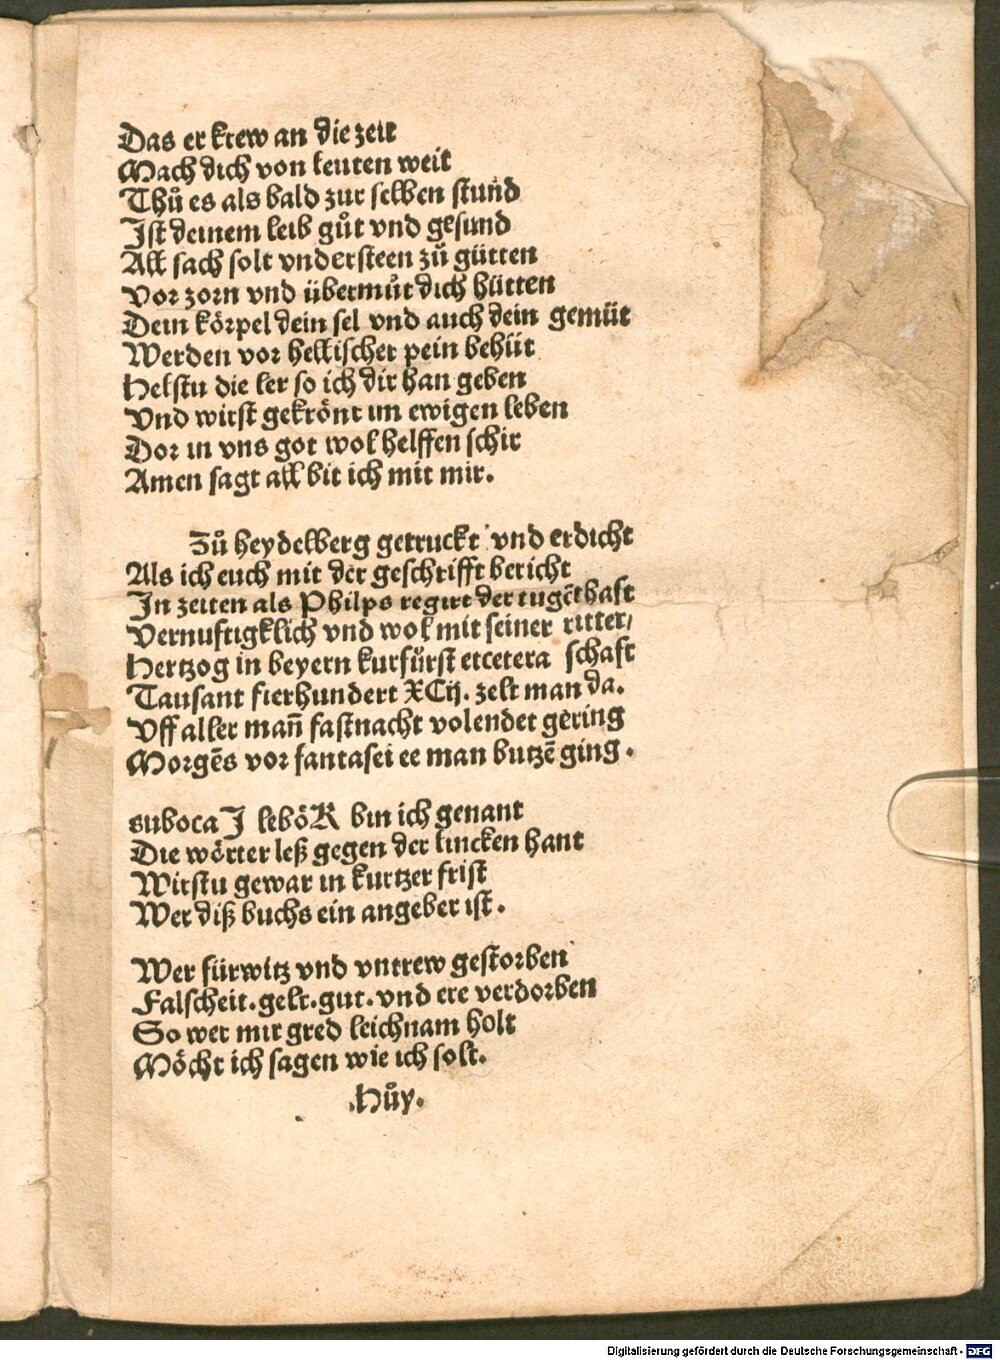 Das er krew an die zeit
Mach dich von leuten weit
Thů es als bald zur selben stund
Ist deinem leib gůt vnd gesund
All sach solt vndersteen zů gütten
Vor zorn vnd übermůt dich hütten
Dein körpel dein sel vnd auch dein gemüt
Werden vor hellischer pein behüt
Helstu die ler so ich dir han geben
Vnd wirst gekrönt im ewigen leben
Dor in vns got wol helffen schir
Amen sagt all bit ich mit mir.
Zů heydelberg getruckt vnd erdicht
Als ich euch mit der geschrifft bericht
In zeiten als Philps regirt der tugēthaft
Vernuftigklich vnd wol mit seiner ritter/
Hertzog in beyern kurfůrst etcetera schaft
Tausant fierhundert XCij. zelt man da.
Vff aller mañ fastnacht volendet gering
Morgēs vor fantasei ee man butzē ging.
suboca J leböR bin ich genant
Die wörter leß gegen der lincken hant
Wirstu gewar in kurtzer frist
Wer diß buchs ein angeber ist.
Wer fürwitz vnd vntrew gestorben
Falscheit. gelt. gut. vnd ere verdorben
So wer mir gred leichnam holt
Möcht ich sagen wie ich solt.
.Hůy.
Digitalisierung gefördert durch die Deutsche Forschungsgemeinschaft - DFG